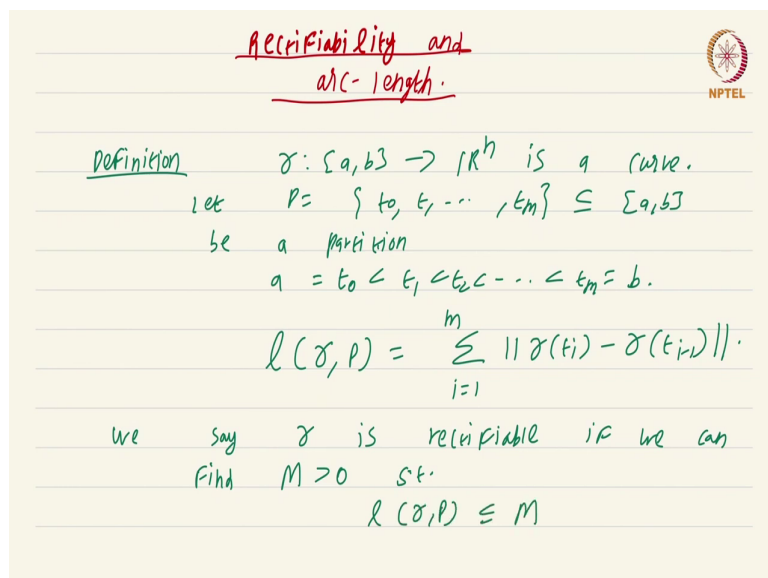 Rectifiability and
arc-length.
NPTEL
Definition γ: [a,b] → ℝⁿ is a curve.
Let P = { t₀, t₁ --- , tₘ} ⊆ [a,b]
be a partition
a = t₀ < t₁ < t₂ < - .. < tₘ = b.
ℓ(γ, P) = ∑ᵢ₌₁ᵐ || γ(tᵢ) − γ(tᵢ₋₁)||.
we say γ is rectifiable if we can
find M > 0 s.t.
ℓ (γ,P) ≤ M